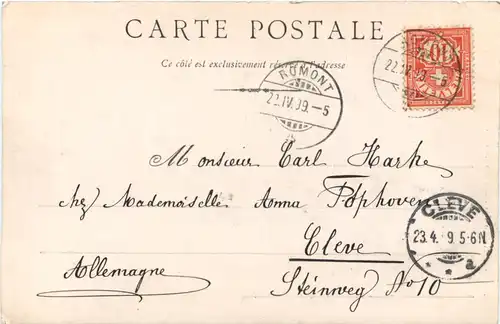 CARTE POSTALE
Ce côté est exclusivement réservé à l'adresse
ROMONT
22.IV.99.-5
22.IV.99.-5
10
Monsieur Carl Harke
chez Mademoiselle Anna Pöphoven
Cleve
Allemagne
Steinweg No 10
CLEVE
23.4. 9.5-6N
* * a